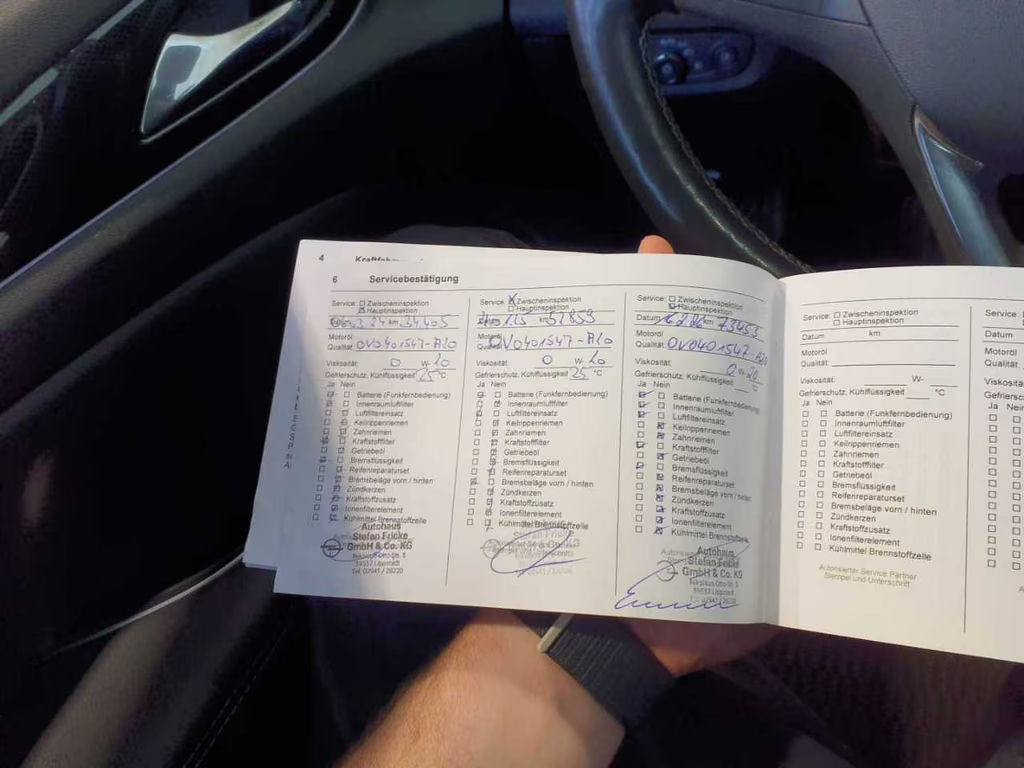 4
6 Servicebestätigung
Service: Zwischeninspektion
Hauptinspektion
km 34405
Motoröl
Qualität: OV0401547-A20
Viskosität: 0 W-20
Gefrierschutz, Kühlflüssigkeit 25 °C
Ja Nein
Batterie (Funkfernbedienung)
Innenraumluftfilter
Luftfiltereinsatz
Keilrippenriemen
Zahnriemen
Kraftstofffilter
Getriebeöl
Bremsflüssigkeit
Reifenreparaturset
Bremsbeläge vorn / hinten
Zündkerzen
Kraftstoffzusatz
Ionenfilterelement
Kühlmittel Brennstoffzelle
Autohaus
Stefan Fricke
GmbH & Co. KG
59557 Lippstadt
Tel. 02941 / 28220
Service: X Zwischeninspektion
Hauptinspektion
km 51859
Motoröl
Qualität: OV0401547-A20
Viskosität: 0 W-20
Gefrierschutz, Kühlflüssigkeit 25 °C
Ja Nein
Batterie (Funkfernbedienung)
Innenraumluftfilter
Luftfiltereinsatz
Keilrippenriemen
Zahnriemen
Kraftstofffilter
Getriebeöl
Bremsflüssigkeit
Reifenreparaturset
Bremsbeläge vorn / hinten
Zündkerzen
Kraftstoffzusatz
Ionenfilterelement
Kühlmittel Brennstoffzelle
Stefan Fricke
Service: Zwischeninspektion
Hauptinspektion
Datum km 73453
Motoröl
Qualität: OV0401547-A20
Viskosität: 0 W-20
Gefrierschutz, Kühlflüssigkeit °C
Ja Nein
Batterie (Funkfernbedienung)
Innenraumluftfilter
Luftfiltereinsatz
Keilrippenriemen
Zahnriemen
Kraftstofffilter
Getriebeöl
Bremsflüssigkeit
Reifenreparaturset
Bremsbeläge vorn / hinten
Zündkerzen
Kraftstoffzusatz
Ionenfilterelement
Kühlmittel Brennstoffzelle
Autohaus
Stefan Fricke
GmbH & Co. KG
59557 Lippstadt
Service: Zwischeninspektion
Hauptinspektion
Datum km
Motoröl
Qualität:
Viskosität: W-
Gefrierschutz, Kühlflüssigkeit °C
Ja Nein
Batterie (Funkfernbedienung)
Innenraumluftfilter
Luftfiltereinsatz
Keilrippenriemen
Zahnriemen
Kraftstofffilter
Getriebeöl
Bremsflüssigkeit
Reifenreparaturset
Bremsbeläge vorn / hinten
Zündkerzen
Kraftstoffzusatz
Ionenfilterelement
Kühlmittel Brennstoffzelle
Autorisierter Service Partner
Stempel und Unterschrift
Service:
Datum
Motoröl
Qualität:
Ja Nein